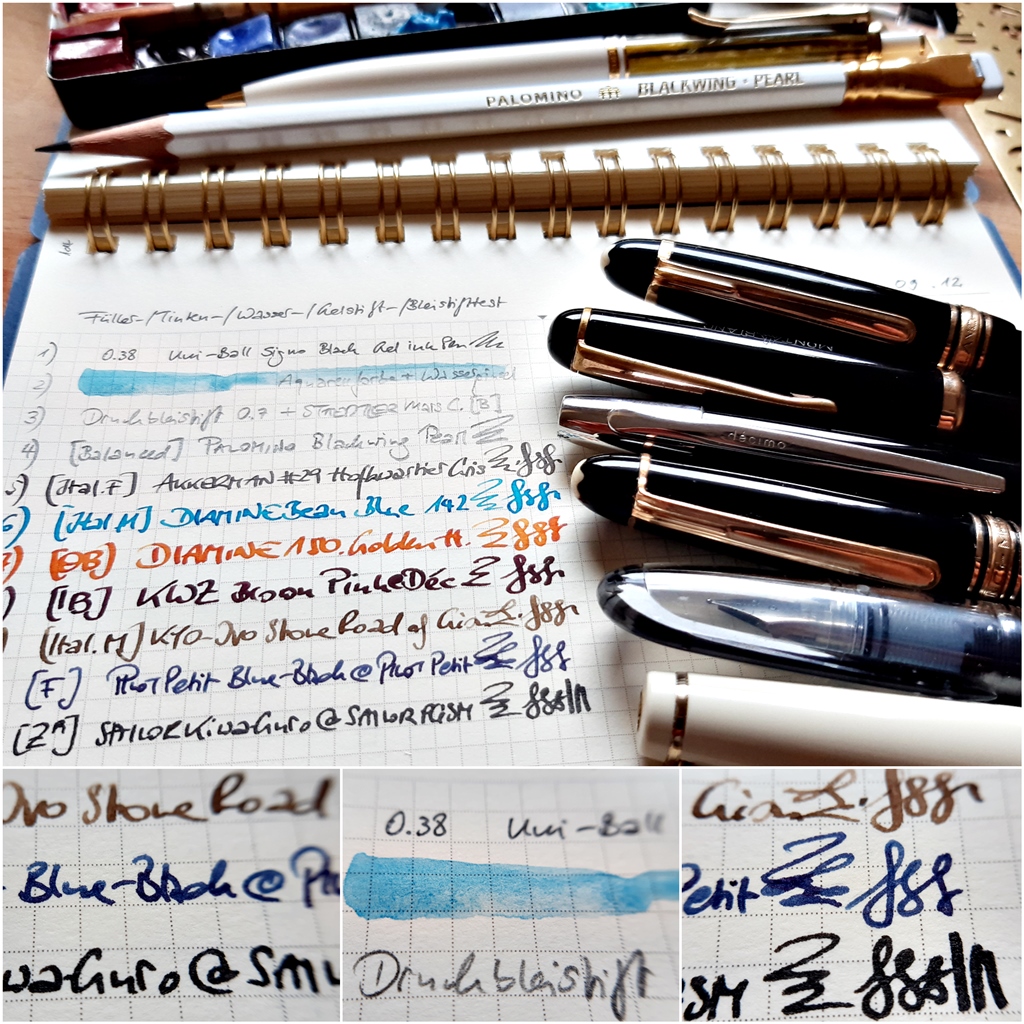 PALOMINO BLACKWING PEARL
104
09.12
Füller-/Tinten-/Wasser-/Gelstift-/Bleistifttest
1) 0.38 Uni-Ball Signo Black Gel ink Pen
2) Aquarellfarbe + Wasserpinsel
3) Druckbleistift 0.7 + STAEDTLER Mars C. [B]
4) [Balanced] PALOMINO Blackwing Pearl
5) [Ital.F] AKKERMAN #29 Hofkwartier Gris fgfgr
6) [Ital.M] DIAMINE Beau Blue 142 fgfgr
7) [OB] DIAMINE 150. Golden H. fgf
) [IB] KWZ Brown Pink@Déc fgfgr
[Ital.M] KYO-Iro Stone Road of Gion fgfgr
[F] Pilot Petit Blue-Black @ Pilot Petit fgf
[ZM] SAILOR Kiwaguro @ SAILOR PGSM
MONTBLANC
décimo
Iro Stone Road
- Blue-Black @ P
waguro @ SAIL
0.38 Uni-Ball
Druckbleistift
Gion
Petit
GSM